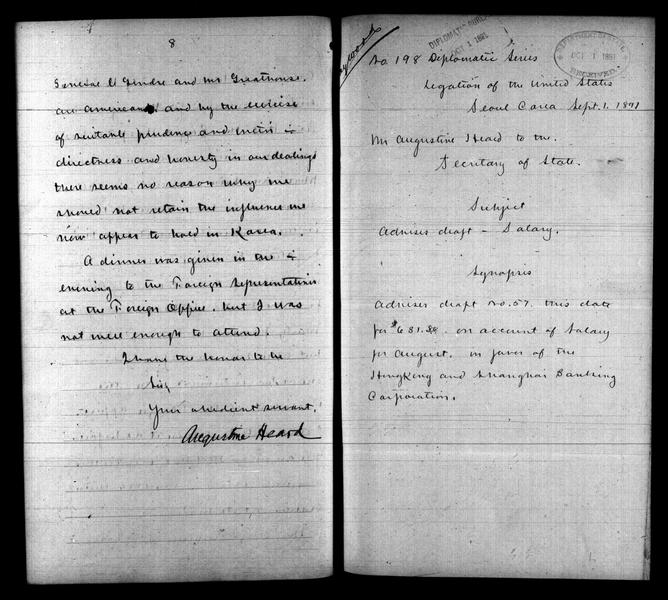 8
General Le Gendre and Mr Greathouse.
are Americans and by the exercise
of suitable prudence and with
directness and honesty in our dealings
there seems no reason why we
should not retain the influence we
now appear to hold in Korea.
A dinner was given in the
evening to the Foreign Representatives
at the Foreign Office. but I was
not well enough to attend.
I have the honor to be
Sir,
Your obedient servant,
Augustine Heard
DIPLOMATIC BUREAU
OCT 1 1891
DEPARTMENT OF STATE
OCT 1 1891
RECEIVED
No 198 Diplomatic Series
Legation of the United States
Seoul Corea Sept. 1. 1891
Mr Augustine Heard to the
Secretary of State.
Subject
Advises draft – Salary.
Synopsis
Advises draft No. 57. this date
for $681.34 on account of Salary
for August. in favor of the
HongKong and Shanghai Banking
Corporation.